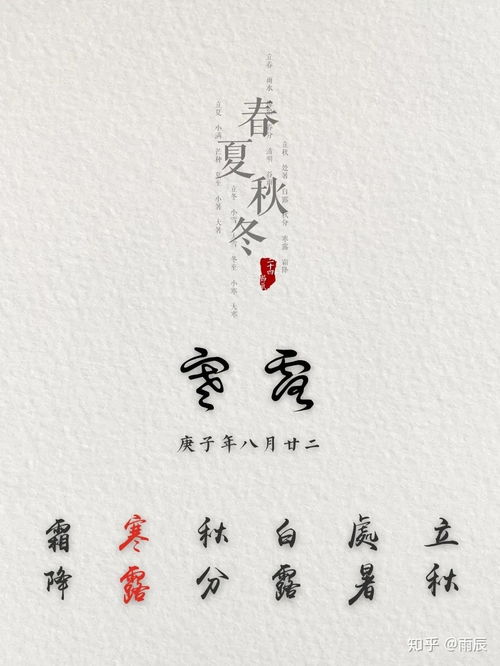 立春 雨水 春分 清明
春夏秋冬
立夏 小满 芒种 夏至 小暑 大暑
立秋 处暑 白露 秋分 寒露 霜降
立冬 小雪 冬至 小寒 大寒
二十四
寒露
庚子年八月廿二
立秋
處暑
白露
秋分
寒露
霜降
知乎 @雨辰